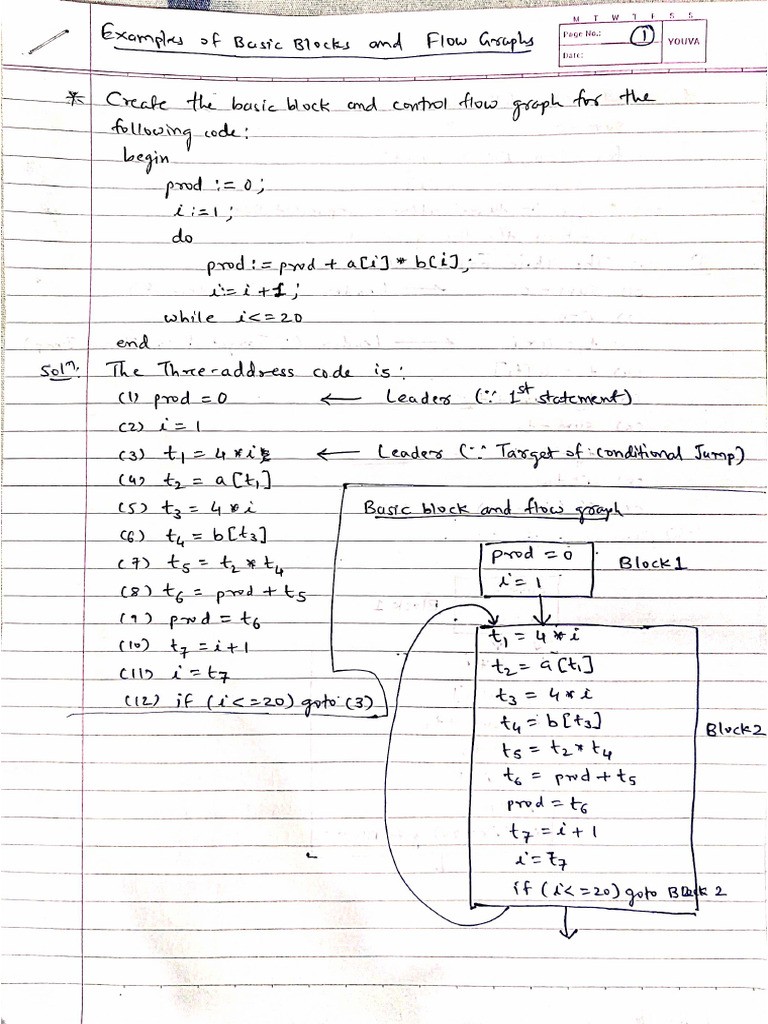 M T W T F S S
Page No.: 1
YOUVA
Date:
Examples of Basic Blocks and Flow Graphs
* Create the basic block and control flow graph for the
following code:
begin
prod := 0;
i:=1;
do
prod:= prod + a[i] * b[i];
i= i +1;
while i<=20
end
Solⁿ. The Three-address code is:
(1) prod = 0 ← Leader (∵ 1st statement)
(2) i = 1
(3) t₁ = 4*i ← Leader (∵ Target of conditional Jump)
(4) t₂ = a[t₁]
(5) t₃ = 4*i
(6) t₄ = b[t₃]
(7) t₅ = t₂*t₄
(8) t₆ = prod + t₅
(9) prod = t₆
(10) t₇ = i+1
(11) i = t₇
(12) if (i<=20) goto (3)
Basic block and flow graph
prod = 0
i = 1
Block1
t₁ = 4*i
t₂ = a[t₁]
t₃ = 4*i
t₄ = b[t₃]
t₅ = t₂*t₄
t₆ = prod + t₅
prod = t₆
t₇ = i+1
i = t₇
if (i<=20) goto Block 2
Block2